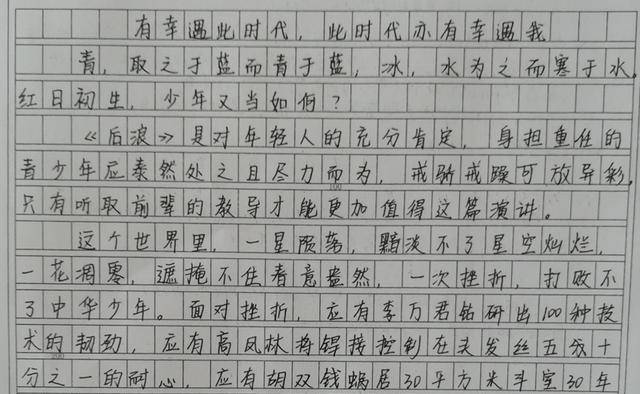 有幸遇此时代，此时代亦有幸遇我
青，取之于蓝而青于蓝，冰，水为之而寒于水。
红日初生，少年又当如何？
《后浪》是对年轻人的充分肯定，身担重任的
青少年应泰然处之且尽力而为，戒骄戒躁可放异彩，
100
只有听取前辈的教导才能更加值得这篇演讲。
这个世界里，一星陨落，黯淡不了星空灿烂，
一花凋零，遮掩不住春意盎然，一次挫折，打败不
了中华少年。面对挫折，应有李万君钻研出100种技
术的韧劲，应有高凤林将焊接控制在头发丝五分十
200
分之一的耐心，应有胡双钱蜗居30平方米斗室30年